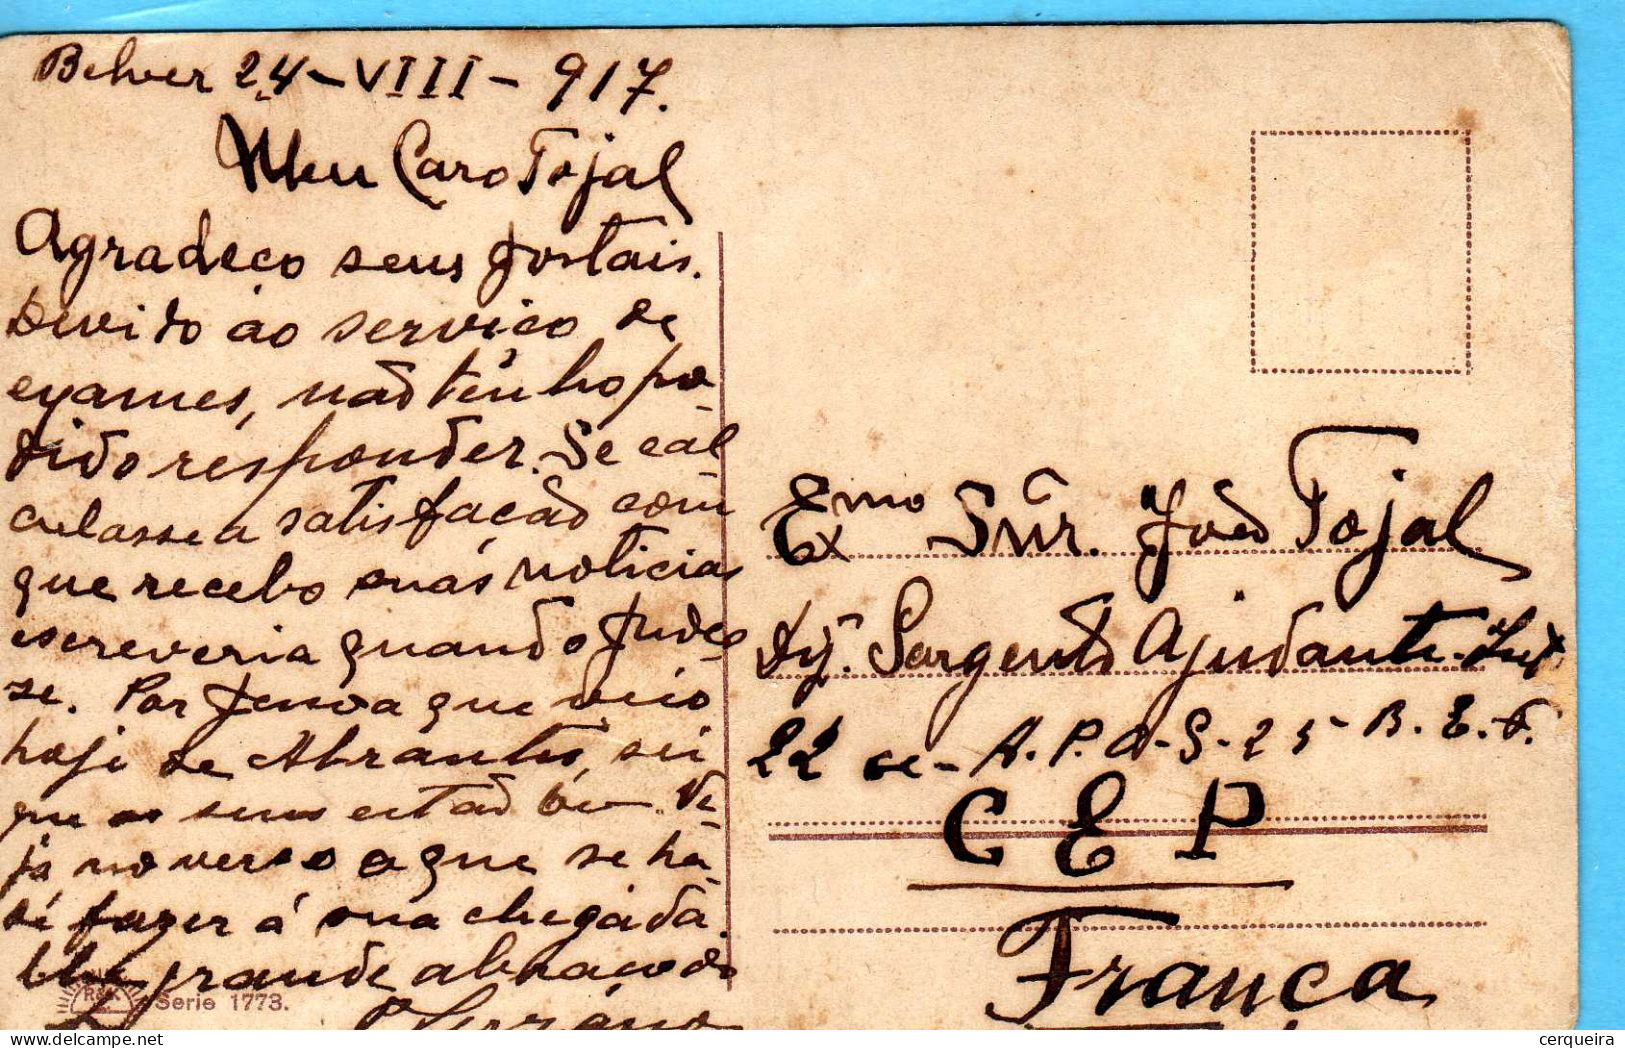 Belver 24-VIII-917.
Meu Caro Tojal
Agradeço seus postais.
Devido ao serviço de
exames, não tenho po-
dido responder. Se cal-
culasse a satisfação com
que recebo suas noticias
escreveria quando pudes
se. Por pessoa que veio
hoje de Abrantes, sei
que os seus estão bem. Ve-
ja no verso o que se ha-
de fazer á sua chegada.
Um grande abraço do
Serrano
R&K Serie 1773.
Exmo Snr. João Tojal
Dgmo. Sargento Ajudante Inft
22 de - A. P. O. - S - 25 - B. E. F.
C E P
França
cerqueira